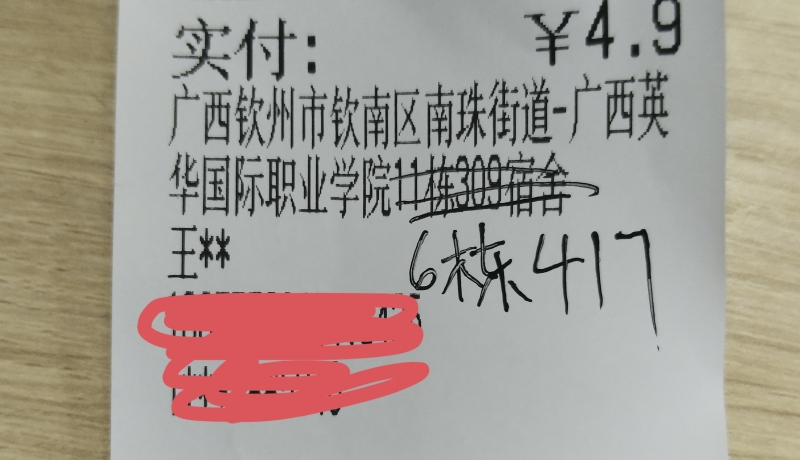 实付: ¥4.9
广西钦州市钦南区南珠街道-广西英
华国际职业学院11栋309宿舍
王**
6栋417